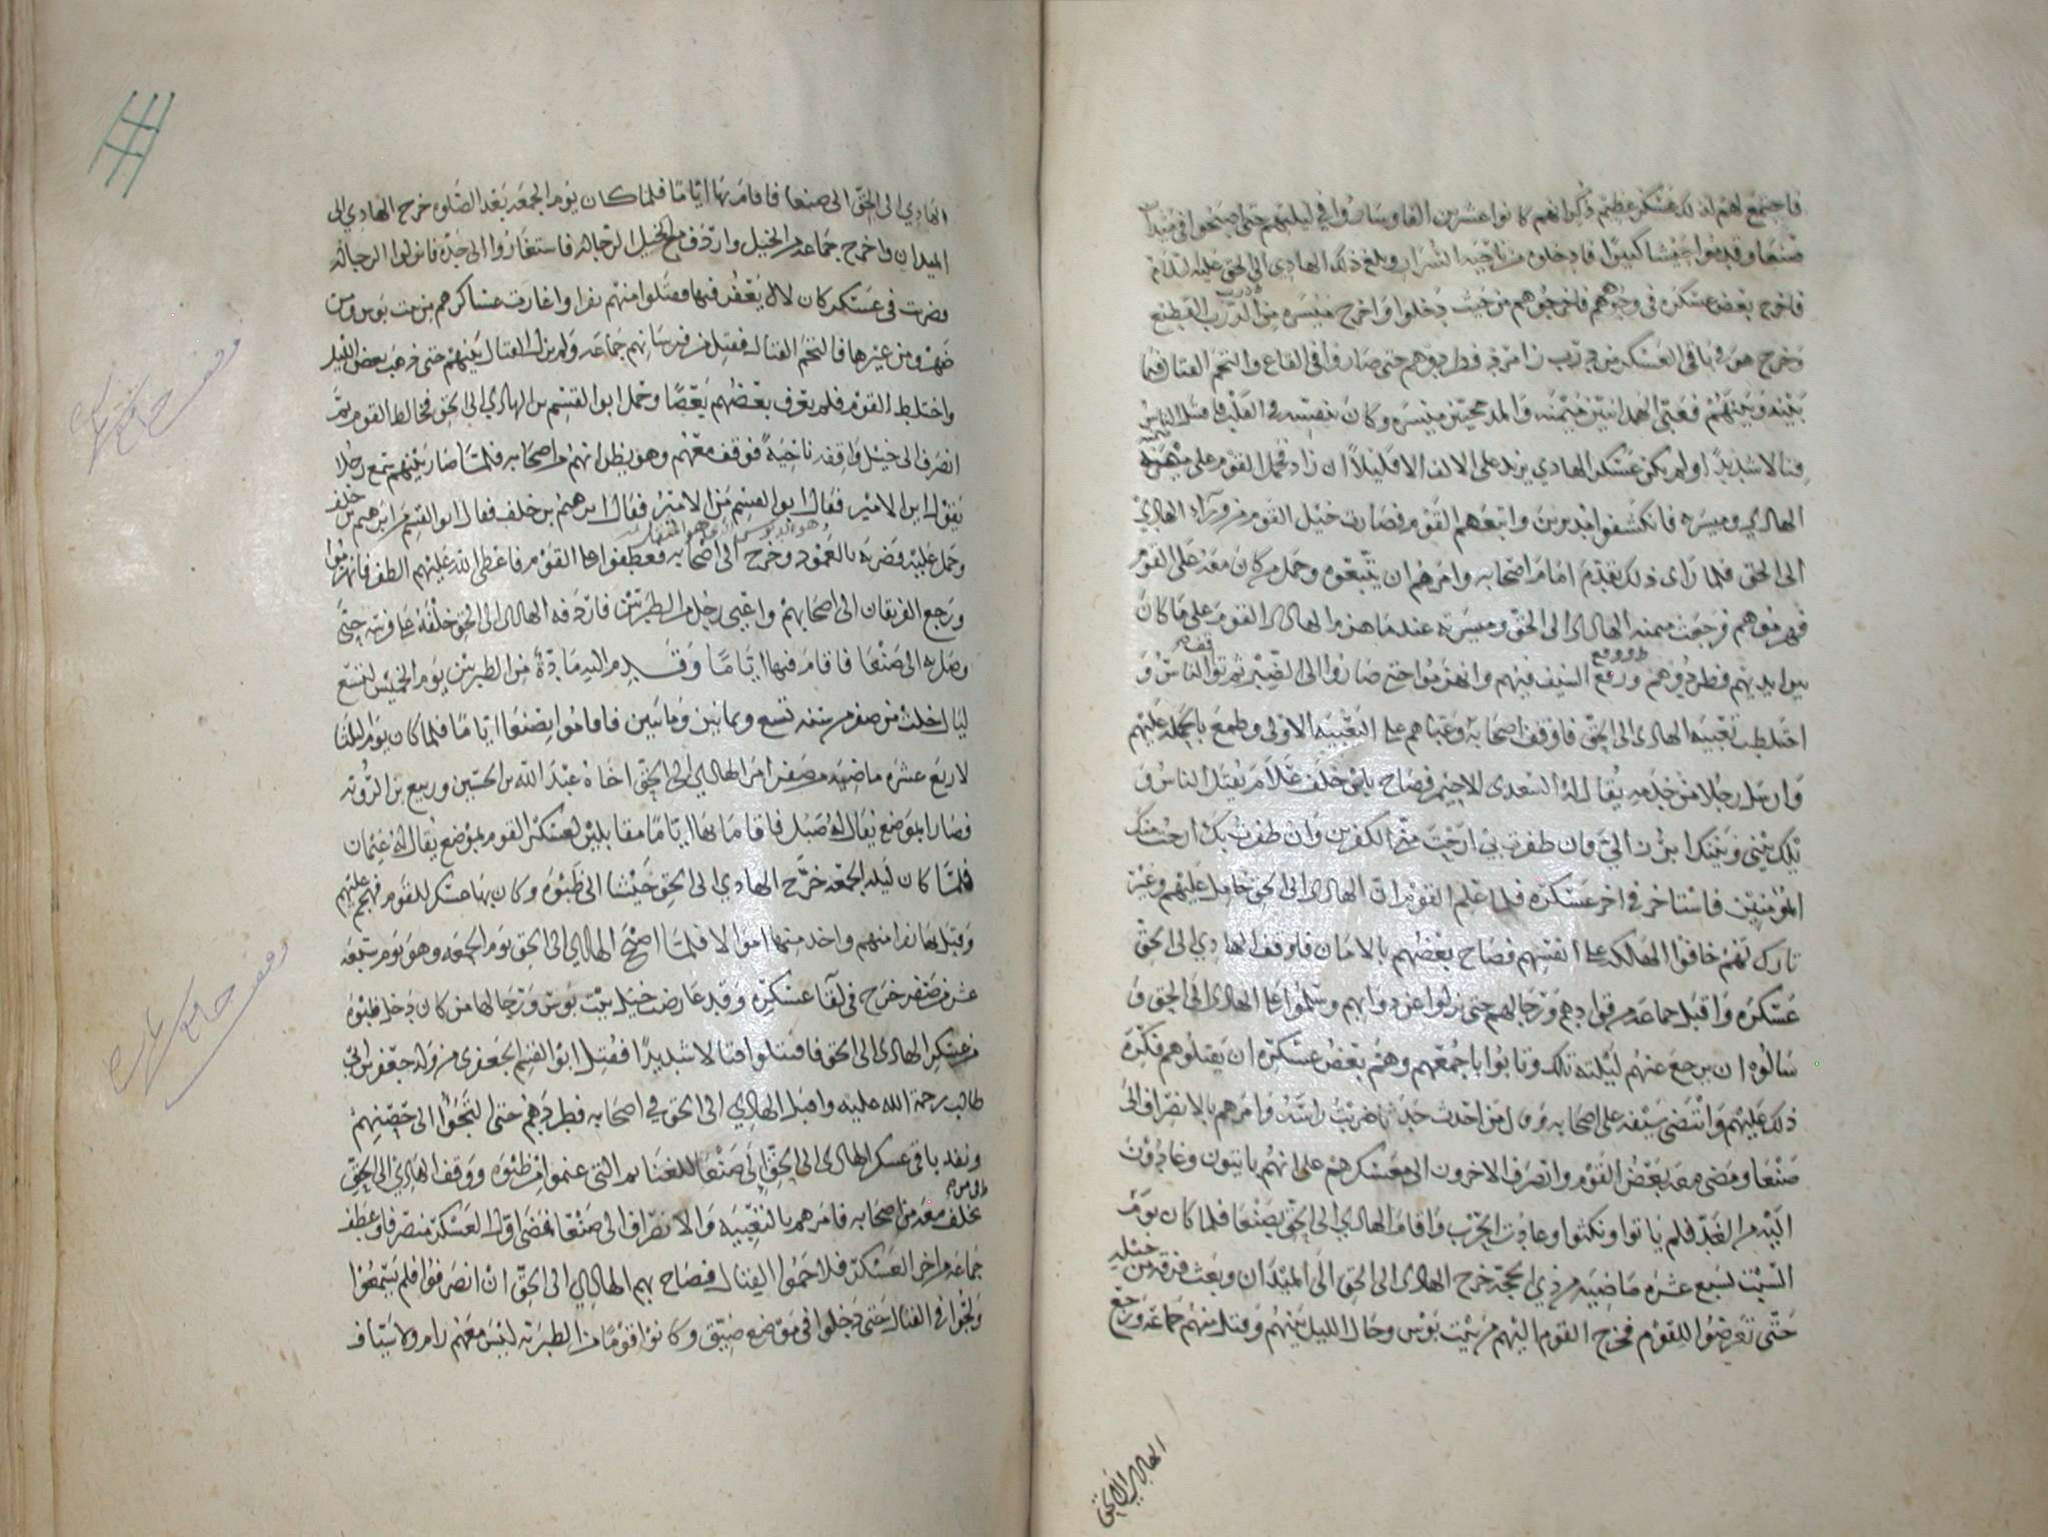 فاجتمع لهم لذلك عسكر عظيم ذكر انهم كانوا عشرين الفا وساروا في ليلتهم حتى اصبحوا في ميدان
صنعا وقدموا جيشا كبيرا فادخلوه من ناحية السرار وبلغ ذلك الهادي الى الحق عليه السلام
فاخرج بعض عسكره في وجوههم فاخرجوهم من حيث دخلوا واخرج ميسره من درب القطيع
وخرج هو في باقي العسكر من درب فطردوهم حتى صاروا في القاع والتحم القتال فيما
بينه وبينهم فعبى الهمدانيين ميمنه والمذحجيين ميسره وكان بنفسه في القلب فاقتتل الناس
قتالا شديدا ولم يكن عسكر الهادي يزيد على الالف الا قليلا ان زاد فحمل القوم على ميمنة
الهادي وميسره فانكشفوا مدبرين واتبعهم القوم فصارت خيل القوم من وراء الهادي
الى الحق فلما راى ذلك تقدم امام اصحابه وامرهم ان يتبعوه وحمل من كان معه على القوم
فهزموهم فرجعت ميمنه الهادي الى الحق وميسرته عندما هزم الهادي القوم على ما كان
بين ايديهم فطردوهم ووقع السيف فيهم وانهزموا حتى صاروا الى ثم توقف الناس و
اختلطت تعبية الهادي الى الحق فاوقف اصحابه وعباهم على التعبيه الاولى وطمع بالحمله عليهم
وارسل رجلا من خدمه يقال له السعدي الاجيم فصاح بابن خلف علام يقتل الناس و
بيني وبينك ابرز الي فان ظفرت بي ارحت مني الكفرين وان ظفرت بك ارحت منك
المؤمنين فاستاخر في اخر عسكره فلما علم القوم ان الهادي الى الحق حامل عليهم وغير
تارك لهم خافوا الهلكه على انفسهم فصاح بعضهم بالامان فاوقف الهادي الى الحق
عسكره واقبل جماعه من قوادهم ورجالهم حتى نزلوا عن دوابهم وسلموا على الهادي الى الحق و
سالوه ان يرجع عنهم ليلته تلك وتابوا باجمعهم وهم بعض عسكره ان يقتلوهم فكره
ذلك عليهم وانتضى سيفه على اصحابه وقال من احدث حدثا ضربت راسه وامرهم بالانصراف الى
صنعا ومضى معه بعض القوم وانصرف الاخرون الى معسكرهم على انهم ياتون وغادون
اليه من الغد فلم ياتوا ونكثوا وعاودت الحرب واقام الهادي الى الحق بصنعا فلما كان يوم
السبت لسبع عشره ماضيه من ذي الحجه خرج الهادي الى الحق الى الميدان وبعث فرقه من خيله
حتى تعرضوا للقوم فخرج القوم اليهم من بيت بوس وحال الليل بينهم وقتل منهم جماعه ورجع
الهادي الى الحق
الهادي الى الحق الى صنعا فاقام بها اياما فلما كان يوم الجمعه بعد الصلوه خرج الهادي الى
الميدان واخرج جماعه من الخيل واردف مع الخيل الرجاله فاستغاروا الى حده فانزلوا الرجاله
فضربت في عسكر كان لال يعفر فيها فقتلوا منهم نفرا واغارت عساكرهم من بيت بوس ومن
ضهر ومن غيرها فالتحم القتال فقتل من فرسانهم جماعه ولم يزل القتال بينهم حتى ذهب بعض الليل
واختلط القوم فلم يعرف بعضهم بعضا وحمل ابو القسم بن الهادي الى الحق فخالط القوم ثم
انصرف الى خيل واقفه ناحية فوقف معهم وهو يظن انهم من اصحابه فلما صار بينهم سمع رجلا
يقول اين الامير فقال ابو القسم من الامير فقال ابرهيم بن خلف فقال ابو القسم من ابرهيم بن خلف
وحمل عليه فضربه بالعمود وخرج الى اصحابه فعطفوا على القوم فاعطى الله عليهم الظفر فانهزموا
ورجع الفريقان الى اصحابهم واعيى رجل من الطبريين فاردفه الهادي الى الحق خلفه على فرسه حتى
وصل به الى صنعا فاقام فيها اياما وقدم اليه مادة من الطبريين يوم الخميس لتسع
ليال خلت من صفر من سنه تسع وثمانين ومايتين فاقاموا بصنعا اياما فلما كان يوم الثلثا
لاربع عشره ماضيه من صفر امر الهادي الى الحق اخاه عبد الله بن الحسين وربيع بن الرويه
فصارا بموضع يقال له صبل فاقاما بها اياما مقابلين لعسكر القوم بموضع يقال له عثمان
فلما كان ليله الجمعه خرج الهادي الى الحق جيشا الى ظبوه وكان بها عسكر للقوم فهجم عليهم
وقتل بها نفرا منهم واخذ منها اموالا فلما اصبح الهادي الى الحق يوم الجمعه وهو يوم سبعه
عشر من صفر خرج في لقا عسكره وقد عارضت خيل بيت بوس ورجالها من كان دخل ظبوه
من عسكر الهادي الى الحق فاقتتلوا قتالا شديدا فقتل ابو القسم الجعفري من ولد جعفر بن ابي
طالب رحمة الله عليه واقبل الهادي الى الحق في اصحابه فطردهم حتى الجوا الى حصنهم
ونفذ باقي عسكر الهادي الى الحق الى صنعا بالغنايم التي غنموا من ظبوه ووقف الهادي الى الحق
تخلف معه من اصحابه فامرهم بالتعبيه والانصراف الى صنعا فمضى اول العسكر منصرفا وعطف
جماعه من اخر العسكر فلاحموا القتال فصاح بهم الهادي الى الحق ان انصرفوا فلم يسمعوا
ولجوا في القتال حتى دخلوا في موضع ضيق وكانوا قوما من الطبريه ليس معهم رام ولا سياف